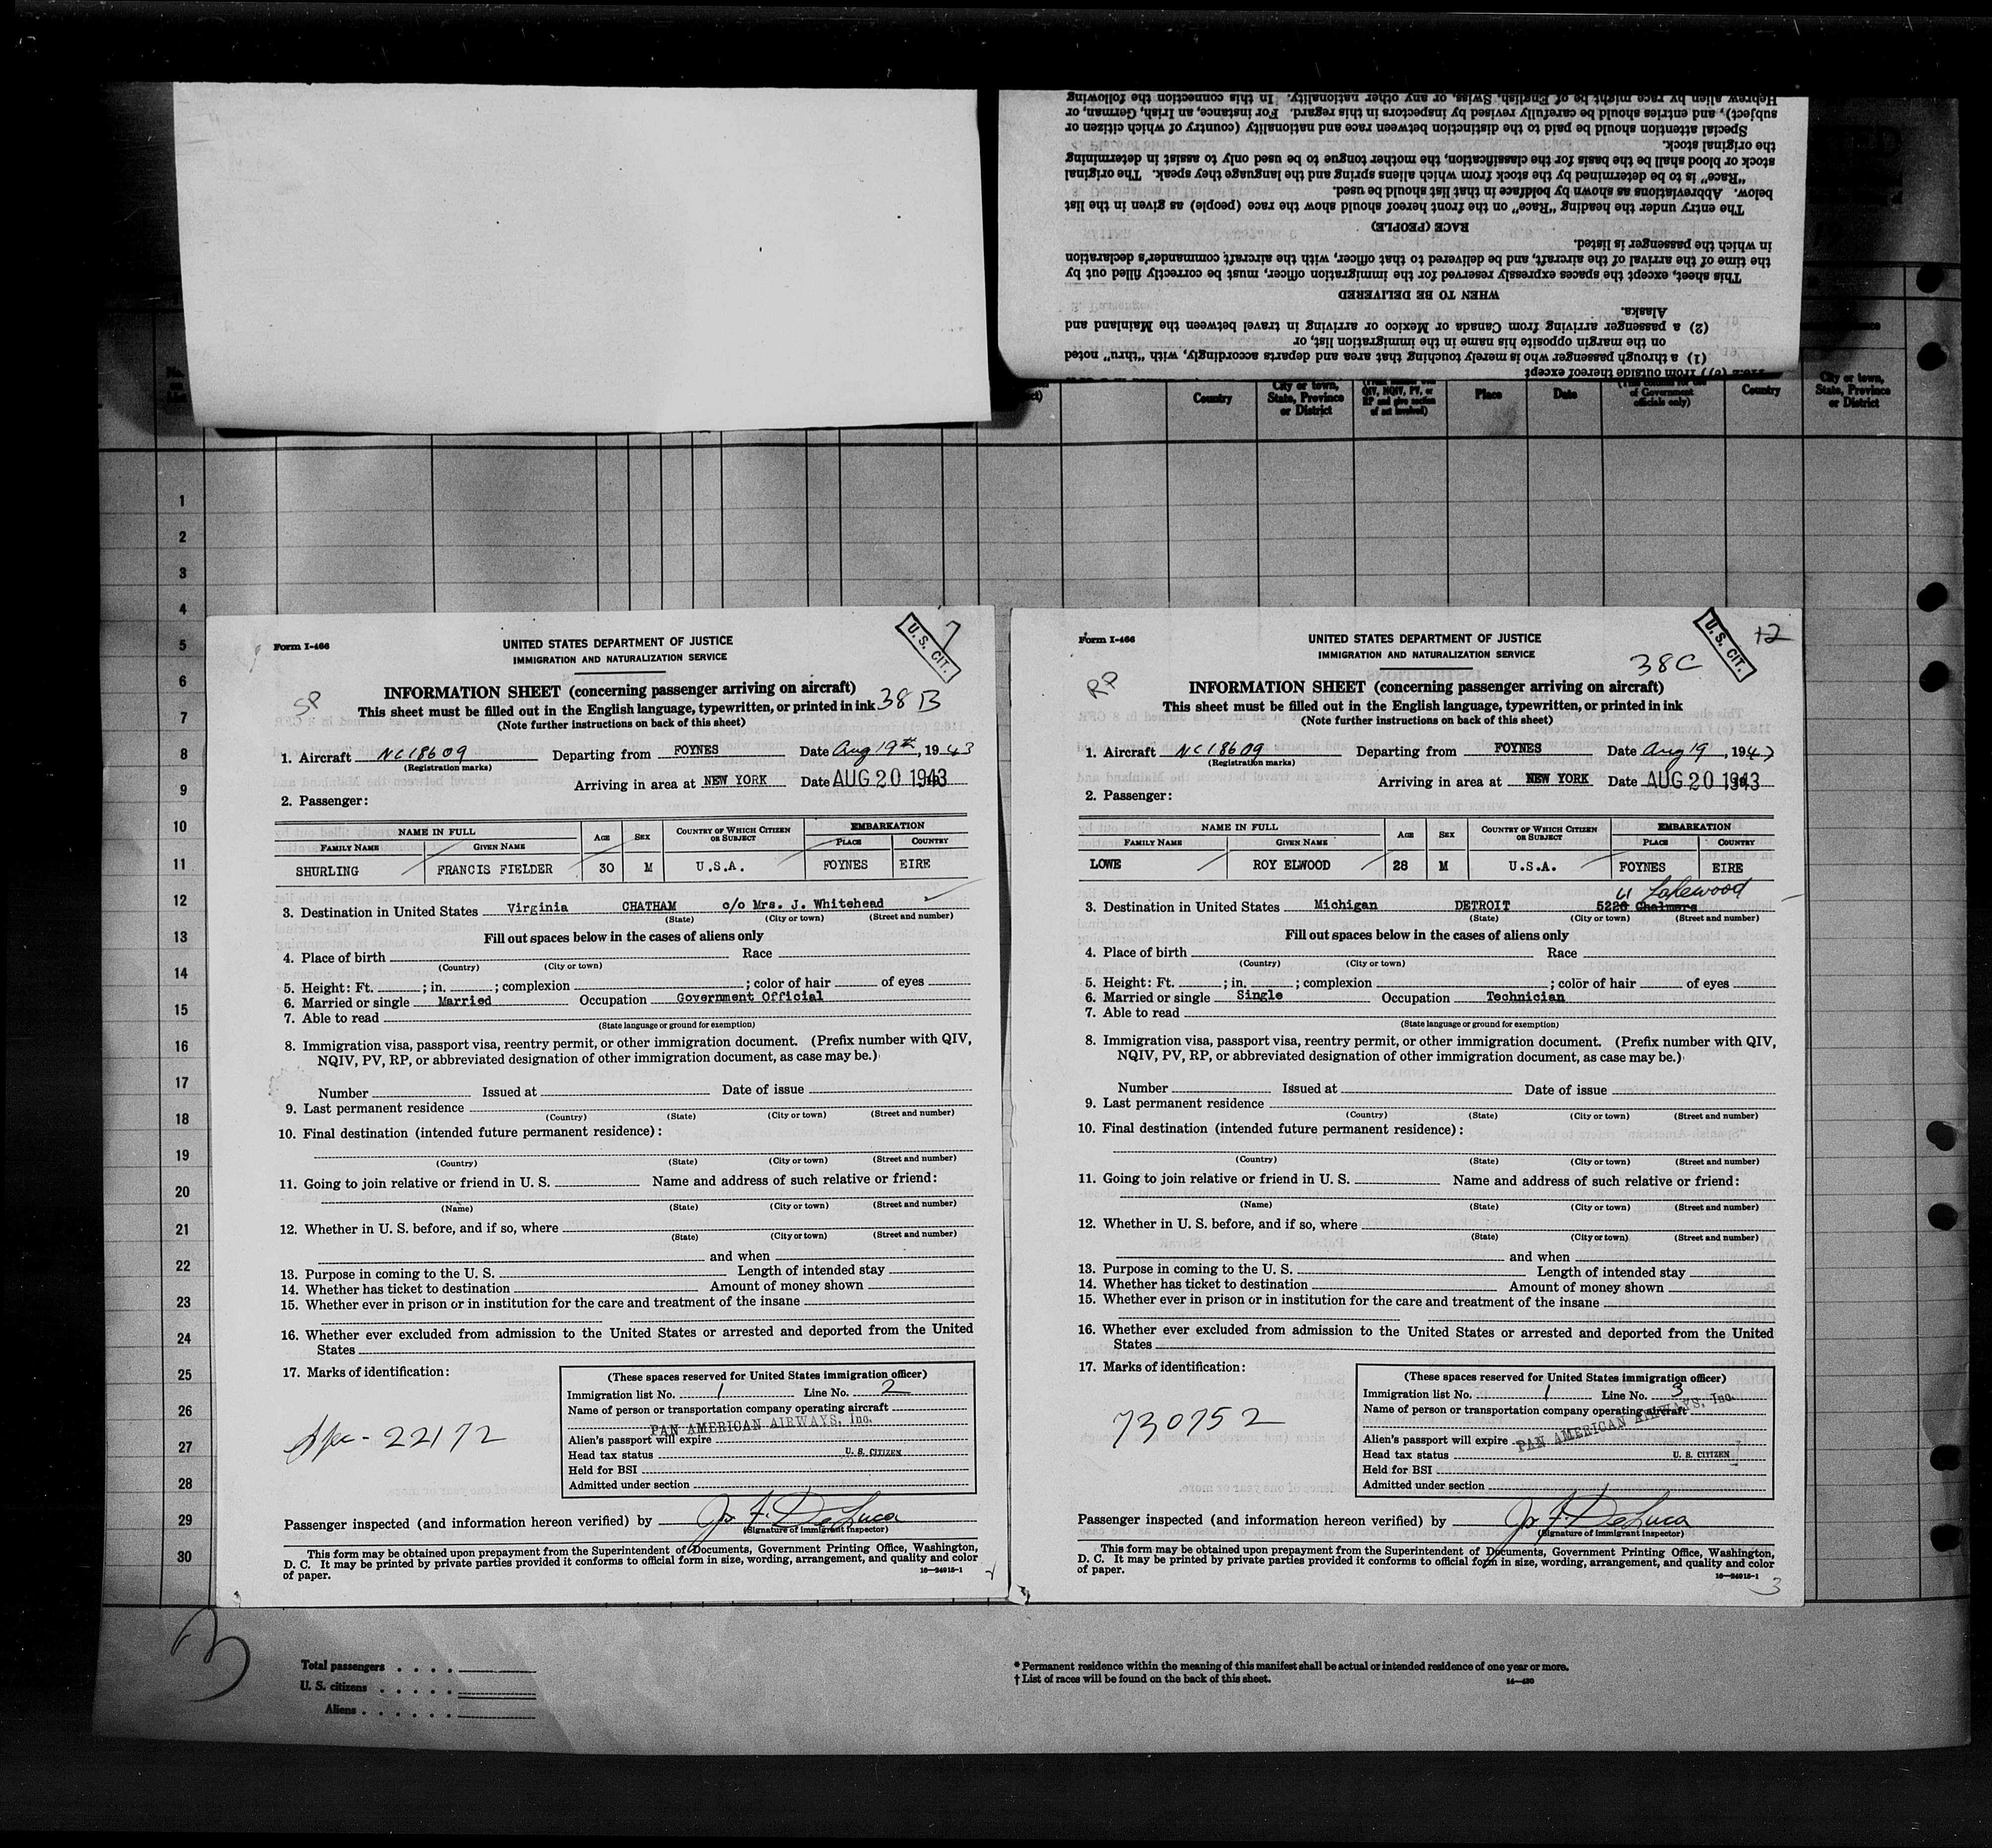 Hebrew alien by race might be of English, Swiss, or any other nationality. In this connection the following
subject), and entries should be carefully revised by inspectors in this regard. For instance, an Irish, German, or
Special attention should be paid to the distinction between race and nationality (country of which citizen or
the original stock.
stock or blood shall be the basis for the classification, the mother tongue to be used only to assist in determining
"Race" is to be determined by the stock from which aliens spring and the language they speak. The original
below. Abbreviations as shown by boldface in that list should be used.
The entry under the heading "Race" on the front hereof should show the race (people) as given in the list
RACE (PEOPLE)
in which the passenger is listed.
the time of the arrival of the aircraft, and be delivered to that officer, with the aircraft commander's declaration
This sheet, except the spaces expressly reserved for the immigration officer, must be correctly filled out by
WHEN TO BE DELIVERED
Alaska.
(2) a passenger arriving from Canada or Mexico or arriving in travel between the Mainland and
on the margin opposite his name in the immigration list, or
(1) a through passenger who is merely touching that area and departs accordingly, with "thru" noted
from outside thereof except
Country
City or town, State, Province or District
QIV, NQIV, PV, or RP and give section of act involved)
Place
Date
of Government officials only)
Country
City or town, State, Province or District
1
2
3
4
5
6
7
8
9
10
11
12
13
14
15
16
17
18
19
20
21
22
23
24
25
26
27
28
29
30
Form I-466
UNITED STATES DEPARTMENT OF JUSTICE
IMMIGRATION AND NATURALIZATION SERVICE
U. S. CIT.
7
SP
INFORMATION SHEET (concerning passenger arriving on aircraft)
38 B
This sheet must be filled out in the English language, typewritten, or printed in ink
(Note further instructions on back of this sheet)
1. Aircraft NC18609 Departing from FOYNES Date Aug 19th, 1943
(Registration marks)
Arriving in area at NEW YORK Date AUG 20 1943
2. Passenger:
NAME IN FULL AGE SEX COUNTRY OF WHICH CITIZEN OR SUBJECT EMBARKATION
FAMILY NAME GIVEN NAME PLACE COUNTRY
SHURLING FRANCIS FIELDER 30 M U.S.A. FOYNES EIRE
3. Destination in United States Virginia CHATHAM c/o Mrs. J. Whitehead
(State) (City or town) (Street and number)
Fill out spaces below in the cases of aliens only
4. Place of birth Race
(Country) (City or town)
5. Height: Ft. ; in. ; complexion ; color of hair of eyes
6. Married or single Married Occupation Government Official
7. Able to read
(State language or ground for exemption)
8. Immigration visa, passport visa, reentry permit, or other immigration document. (Prefix number with QIV,
NQIV, PV, RP, or abbreviated designation of other immigration document, as case may be.)
Number Issued at Date of issue
9. Last permanent residence
(Country) (State) (City or town) (Street and number)
10. Final destination (intended future permanent residence):
(Country) (State) (City or town) (Street and number)
11. Going to join relative or friend in U. S. Name and address of such relative or friend:
(Name) (State) (City or town) (Street and number)
12. Whether in U. S. before, and if so, where
(State) (City or town) (Street and number)
and when
13. Purpose in coming to the U. S. Length of intended stay
14. Whether has ticket to destination Amount of money shown
15. Whether ever in prison or in institution for the care and treatment of the insane
16. Whether ever excluded from admission to the United States or arrested and deported from the United
States
17. Marks of identification:
(These spaces reserved for United States immigration officer)
Immigration list No. 1 Line No. 2
Name of person or transportation company operating aircraft
PAN AMERICAN AIRWAYS, Inc.
22172
Alien's passport will expire
Head tax status U. S. CITIZEN
Held for BSI
Admitted under section
Passenger inspected (and information hereon verified) by Js. F. DeLuca
(Signature of immigrant inspector)
This form may be obtained upon prepayment from the Superintendent of Documents, Government Printing Office, Washington,
D. C. It may be printed by private parties provided it conforms to official form in size, wording, arrangement, and quality and color
of paper.
16—24915-1
Form I-466
UNITED STATES DEPARTMENT OF JUSTICE
IMMIGRATION AND NATURALIZATION SERVICE
38C
U. S. CIT.
12
RP
INFORMATION SHEET (concerning passenger arriving on aircraft)
This sheet must be filled out in the English language, typewritten, or printed in ink
(Note further instructions on back of this sheet)
1. Aircraft NC18609 Departing from FOYNES Date Aug 19, 1943
(Registration marks)
Arriving in area at NEW YORK Date AUG 20 1943
2. Passenger:
NAME IN FULL AGE SEX COUNTRY OF WHICH CITIZEN OR SUBJECT EMBARKATION
FAMILY NAME GIVEN NAME PLACE COUNTRY
LOWE ROY ELWOOD 28 M U.S.A. FOYNES EIRE
Lakewood
3. Destination in United States Michigan DETROIT 5226 Chalmers
(State) (City or town) (Street and number)
Fill out spaces below in the cases of aliens only
4. Place of birth Race
(Country) (City or town)
5. Height: Ft. ; in. ; complexion ; color of hair of eyes
6. Married or single Single Occupation Technician
7. Able to read
(State language or ground for exemption)
8. Immigration visa, passport visa, reentry permit, or other immigration document. (Prefix number with QIV,
NQIV, PV, RP, or abbreviated designation of other immigration document, as case may be.)
Number Issued at Date of issue
9. Last permanent residence
(Country) (State) (City or town) (Street and number)
10. Final destination (intended future permanent residence):
(Country) (State) (City or town) (Street and number)
11. Going to join relative or friend in U. S. Name and address of such relative or friend:
(Name) (State) (City or town) (Street and number)
12. Whether in U. S. before, and if so, where
(State) (City or town) (Street and number)
and when
13. Purpose in coming to the U. S. Length of intended stay
14. Whether has ticket to destination Amount of money shown
15. Whether ever in prison or in institution for the care and treatment of the insane
16. Whether ever excluded from admission to the United States or arrested and deported from the United
States
17. Marks of identification:
(These spaces reserved for United States immigration officer)
Immigration list No. 1 Line No. 3
Name of person or transportation company operating aircraft
PAN AMERICAN AIRWAYS, Inc.
730752
Alien's passport will expire
Head tax status U. S. CITIZEN
Held for BSI
Admitted under section
Passenger inspected (and information hereon verified) by Js. F. DeLuca
(Signature of immigrant inspector)
This form may be obtained upon prepayment from the Superintendent of Documents, Government Printing Office, Washington,
D. C. It may be printed by private parties provided it conforms to official form in size, wording, arrangement, and quality and color
of paper.
16—24915-1
3
3
Total passengers
U. S. citizens
Aliens
* Permanent residence within the meaning of this manifest shall be actual or intended residence of one year or more.
† List of races will be found on the back of this sheet.
14—430